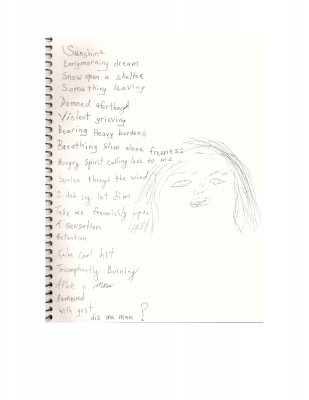 Sunshine
Early morning dream
Snow upon a shelter
Something leaving
Demned afterthough
Violent grieving
Bearing Heavy burdens
Breathing Slim alone freeness
Hungry Spirit calling love to me
Sunrise though the wind
I did cry. let dim
Take me upon
A sensation
Retention
Calm Cool hit
Triumphantly Burning
After a
Removed
With gust
dis me man ?